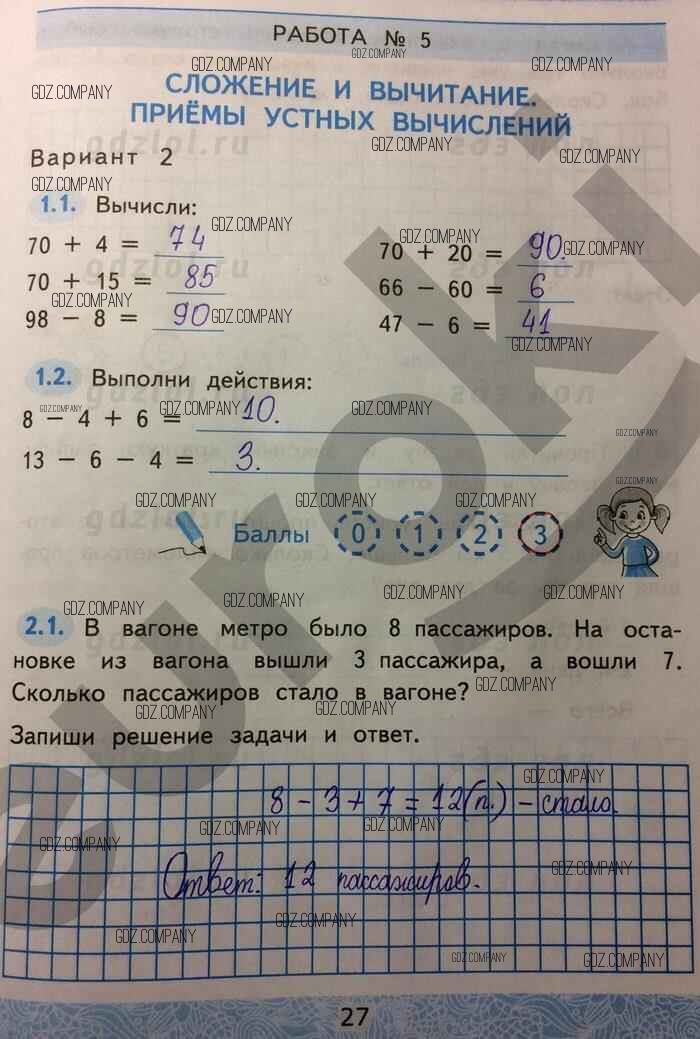 РАБОТА № 5
СЛОЖЕНИЕ И ВЫЧИТАНИЕ.
ПРИЁМЫ УСТНЫХ ВЫЧИСЛЕНИЙ
Вариант 2
1.1. Вычисли:
70 + 4 = 74
70 + 20 = 90.
70 + 15 = 85
66 − 60 = 6
98 − 8 = 90
47 − 6 = 41
1.2. Выполни действия:
8 − 4 + 6 = 10.
13 − 6 − 4 = 3.
Баллы 0 1 2 3
2.1. В вагоне метро было 8 пассажиров. На оста-
новке из вагона вышли 3 пассажира, а вошли 7.
Сколько пассажиров стало в вагоне?
Запиши решение задачи и ответ.
8 − 3 + 7 = 12 (п.) − стало.
Ответ: 12 пассажиров.
27
GDZ.COMPANY
euroki